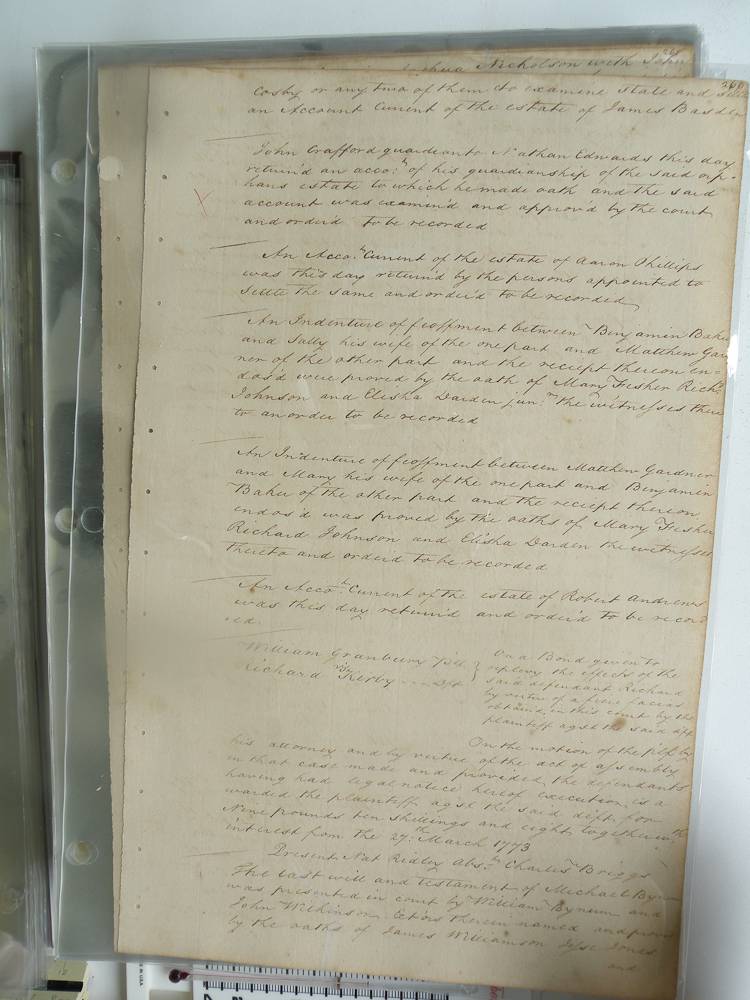 268
Joshua Nicholson with John
260
Cosby or any two of them to examine state and settle
an Account Current of the estate of James Basden
John Crafford guardian to Nathan Edwards this day
return'd an accot. of his guardianship of the said orp-
hans estate to which he made oath and the said
account was examin'd and approv'd by the court
and order'd to be recorded
An Accot. Current of the estate of Aaron Phillips
was this day return'd by the persons appointed to
settle the same and order'd to be recorded
An Indenture of feoffment between Benjamin Baker
and Sally his wife of the one part and Matthew Gard
ner of the other part and the reciept thereon en-
dos'd were proved by the oath of Mary Fesher Richd.
Johnson and Elisha Darden junr. the witnesses there
to an order to be recorded
An Indenture of feoffment between Matthew Gardner
and Mary his wife of the one part and Benjamin
Baker of the other part and the reciept thereon
endos'd was proved by the oaths of Mary Fesher
Richard Johnson and Elisha Darden the witnesses
thereto and order'd to be recorded
An Accot. Current of the estate of Robert Andrews
was this day return'd and order'd to be record
ed.
William Granbury Plt
vs
Richard Kerby Deft
On a Bond given to
repleivy the effects of the
said defendant Richard
by virtue of a fiere facias
obtain'd in this court by the
plaintiff agst the said deft
On the motion of the plt by
his attorney and by virtue of the act of assembly
in that case made and provided, the defendants
having had legal notice hereof execution is a
warded the plaintiff agst the said deft. for
Nine pounds ten shillings and eight together with
interest from the 27th March 1773
Present Nat Ridley Abst. Charles Briggs
The last will and testament of Michael Bynum
was presented in court by William Bynum and
John Wilkinson Extors therein named and proved
by the oaths of James Williamson Jesse Jones
and